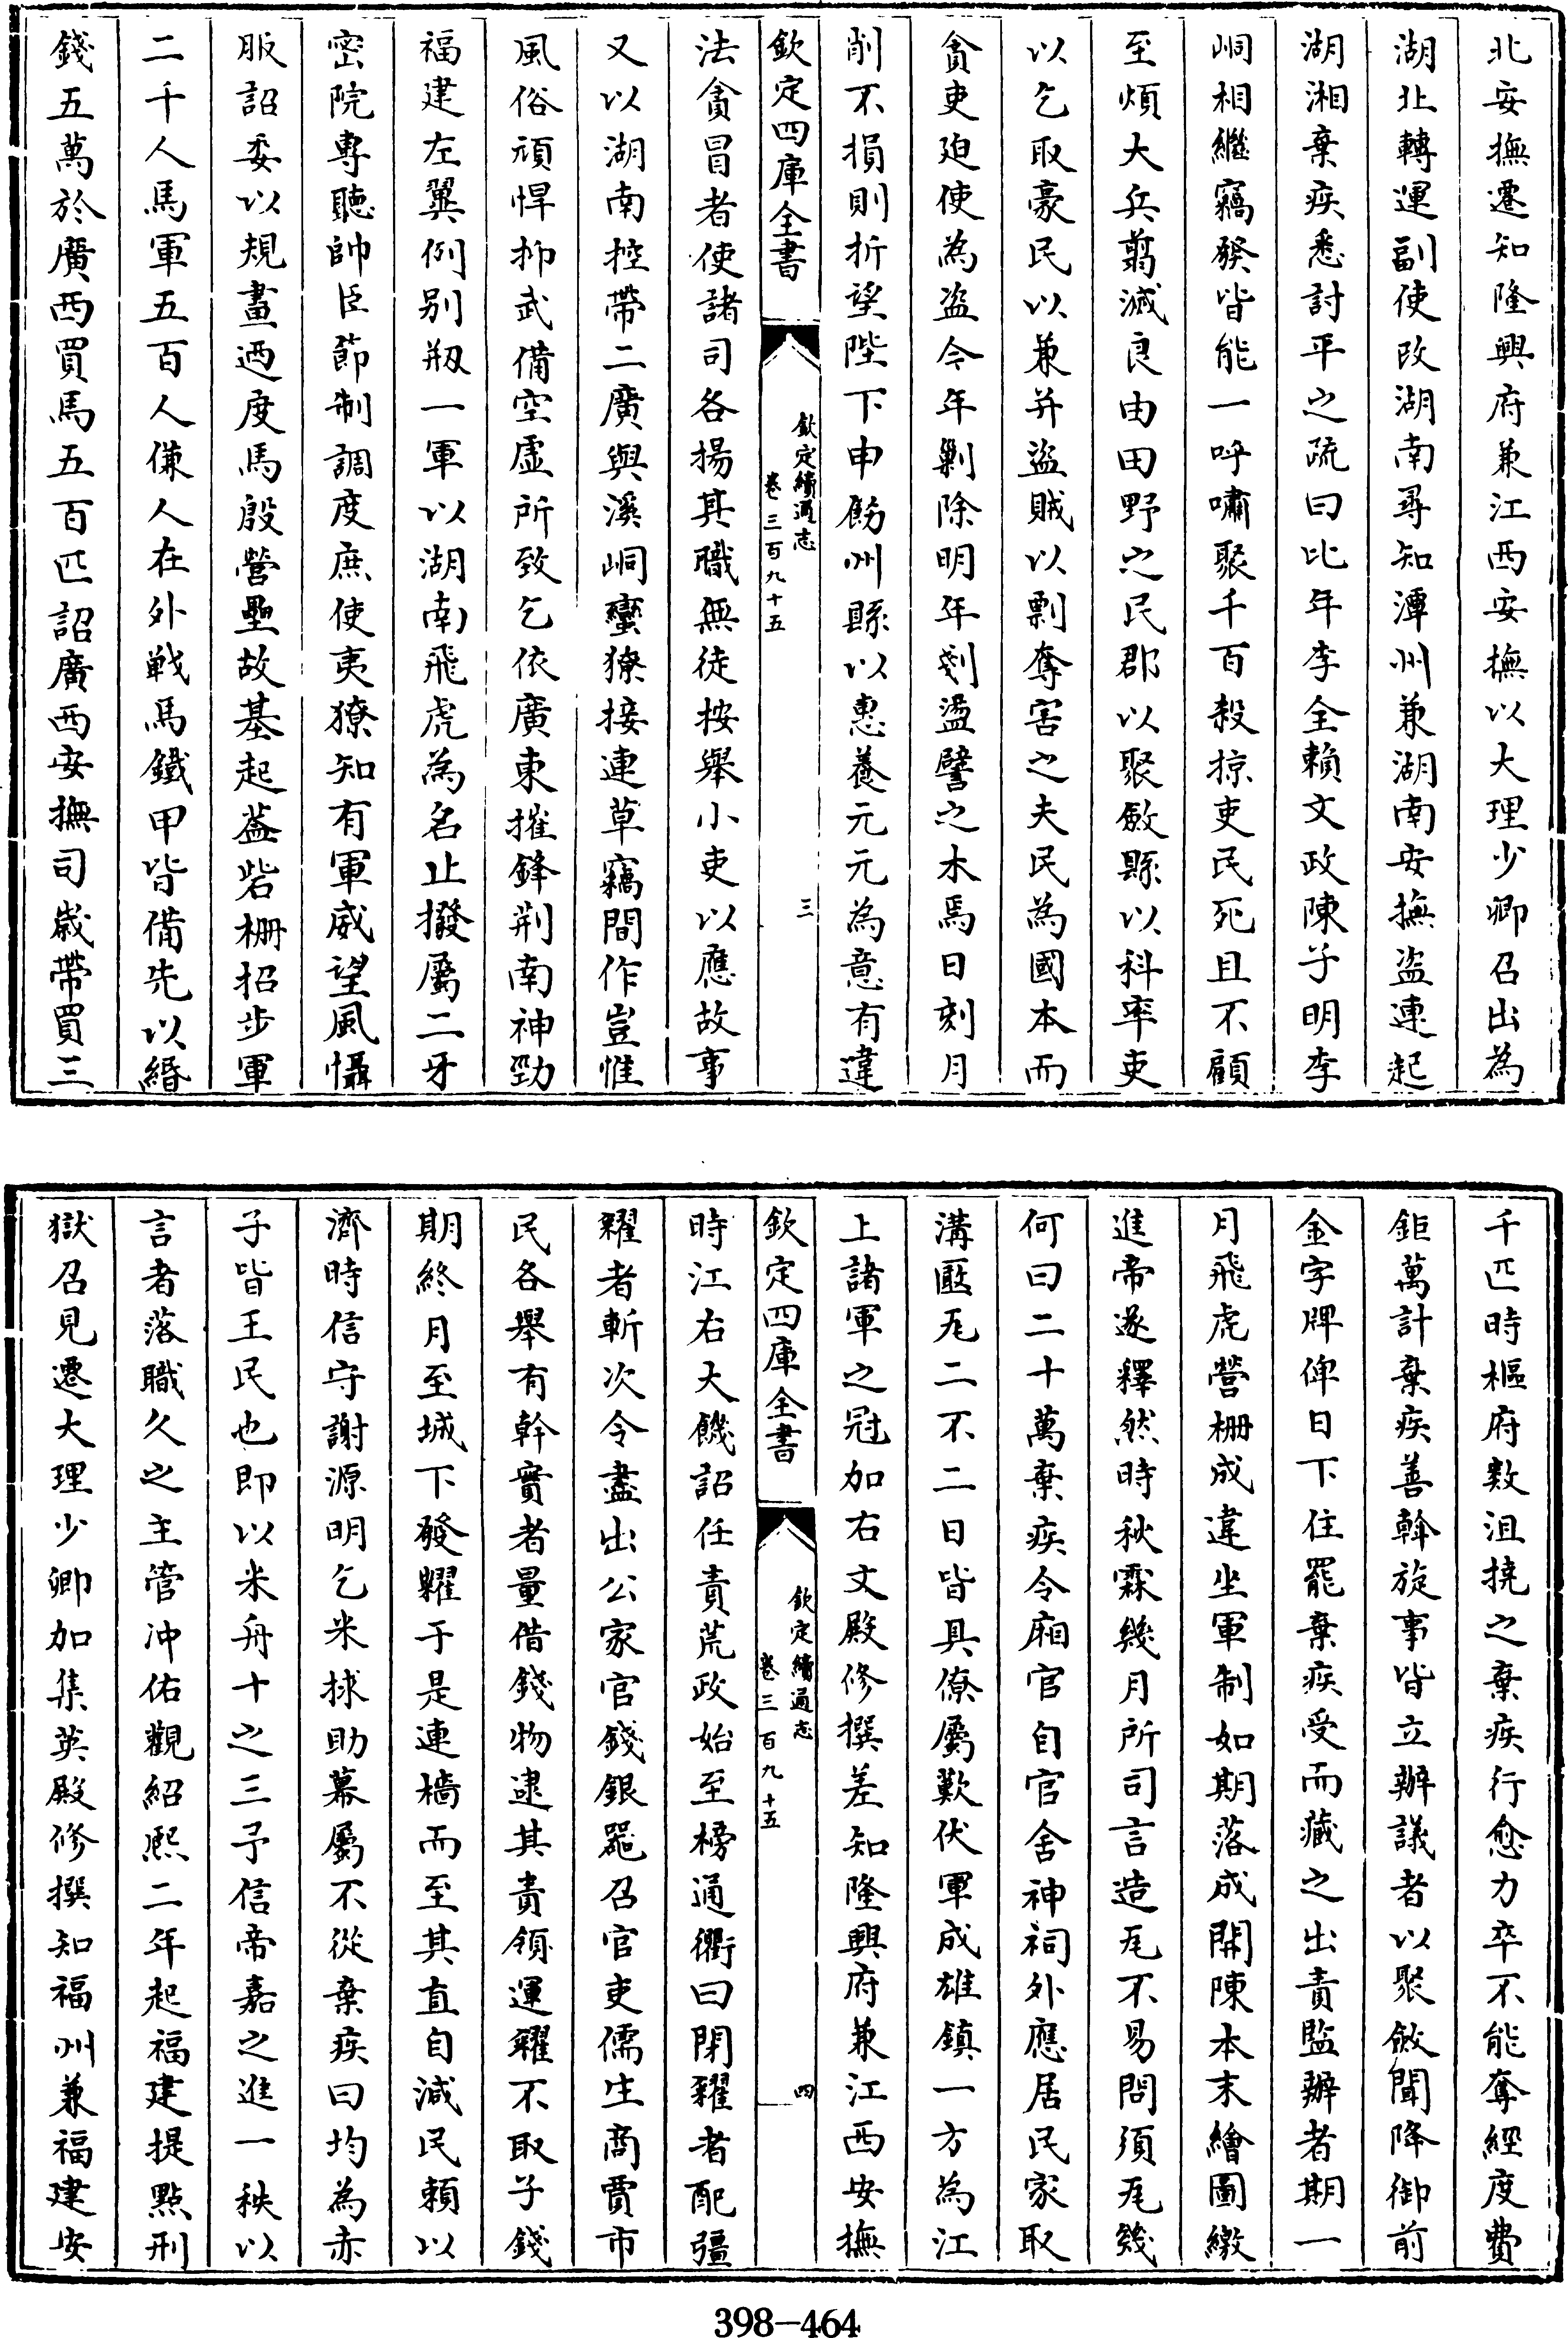 北安撫遷知隆興府兼江西安撫以大理少卿召出為
湖北轉運副使改湖南尋知潭州兼湖南安撫盜連起
湖湘棄疾悉討平之疏曰比年李全賴文政陳子明李
峒相繼竊發皆能一呼嘯聚千百殺掠吏民死且不顧
至煩大兵翦滅良由田野之民郡以聚斂縣以科率吏
以乞取豪民以兼并盜賊以剽奪害之夫民為國本而
貪吏廹使為盜今年剿除明年剗盪譬之木焉日刻月
削不損則折望陛下申飭州縣以惠養元元為意有違
欽定四庫全書
欽定續通志
卷三百九十五
三
法貪冒者使諸司各揚其職無徒按舉小吏以應故事
又以湖南控帶二廣與溪峒蠻獠接連草竊間作豈惟
風俗頑悍抑武備空虛所致乞依廣東摧鋒荆南神勁
福建左翼例别剏一軍以湖南飛虎為名止撥屬二牙
密院專聽帥臣節制調度庶使夷獠知有軍威望風懾
服詔委以規畫迺度馬殷營壘故基起葢砦栅招步軍
二千人馬軍五百人傔人在外戰馬鐵甲皆備先以緡
錢五萬於廣西買馬五百匹詔廣西安撫司歲帶買三
千匹時樞府數沮撓之棄疾行愈力卒不能奪經度費
鉅萬計棄疾善斡旋事皆立辦議者以聚斂聞降御前
金字牌俾日下住罷棄疾受而藏之出責監辦者期一
月飛虎營栅成違坐軍制如期落成開陳本末繪圖繳
進帝遂釋然時秋霖幾月所司言造瓦不易問須瓦幾
何曰二十萬棄疾令廂官自官舍神祠外應居民家取
溝匽瓦二不二日皆具僚屬歎伏軍成雄鎮一方為江
上諸軍之冠加右文殿修撰差知隆興府兼江西安撫
欽定四庫全書
欽定續通志
卷三百九十五
四
時江右大饑詔任責荒政始至榜通衢曰閉糴者配彊
糴者斬次令盡出公家官錢銀器召官吏儒生商賈市
民各舉有幹實者量借錢物逮其責領運糴不取子錢
期終月至城下發糶于是連檣而至其直自減民賴以
濟時信守謝源明乞米捄助幕屬不從棄疾曰均為赤
子皆王民也即以米舟十之三予信帝嘉之進一秩以
言者落職久之主管沖佑觀紹熙二年起福建提點刑
獄召見遷大理少卿加集英殿修撰知福州兼福建安
398-464